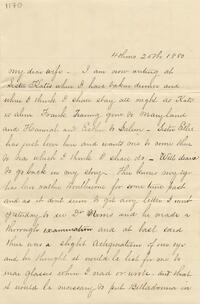 1180
4th mo 25th, 1880
My dear wife - I am now writing at
Sister Kate's where I have taken dinner and
where I think I shall stay all night as Kate
is alone Frank having gone to Maryland
and Hannah and Esther to Salem. Sister Eliza
has just been here and wants me to come over
to tea which I think I shall do - Well dear
to go back in my story. The
has been rather troublesome for some time past
and as it don't seem to get any better I went
yesterday to see Dr and he made a
thorough examination and at last said
there was a slight of one eye
and he thought it would be best for me to
use glasses when I read or write. And that
it would be necessary to put Belladonna in